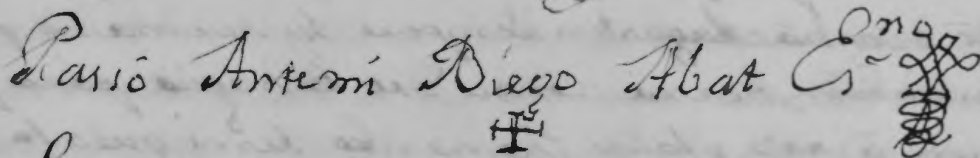 Passó Antemi Diego Abat Es.no